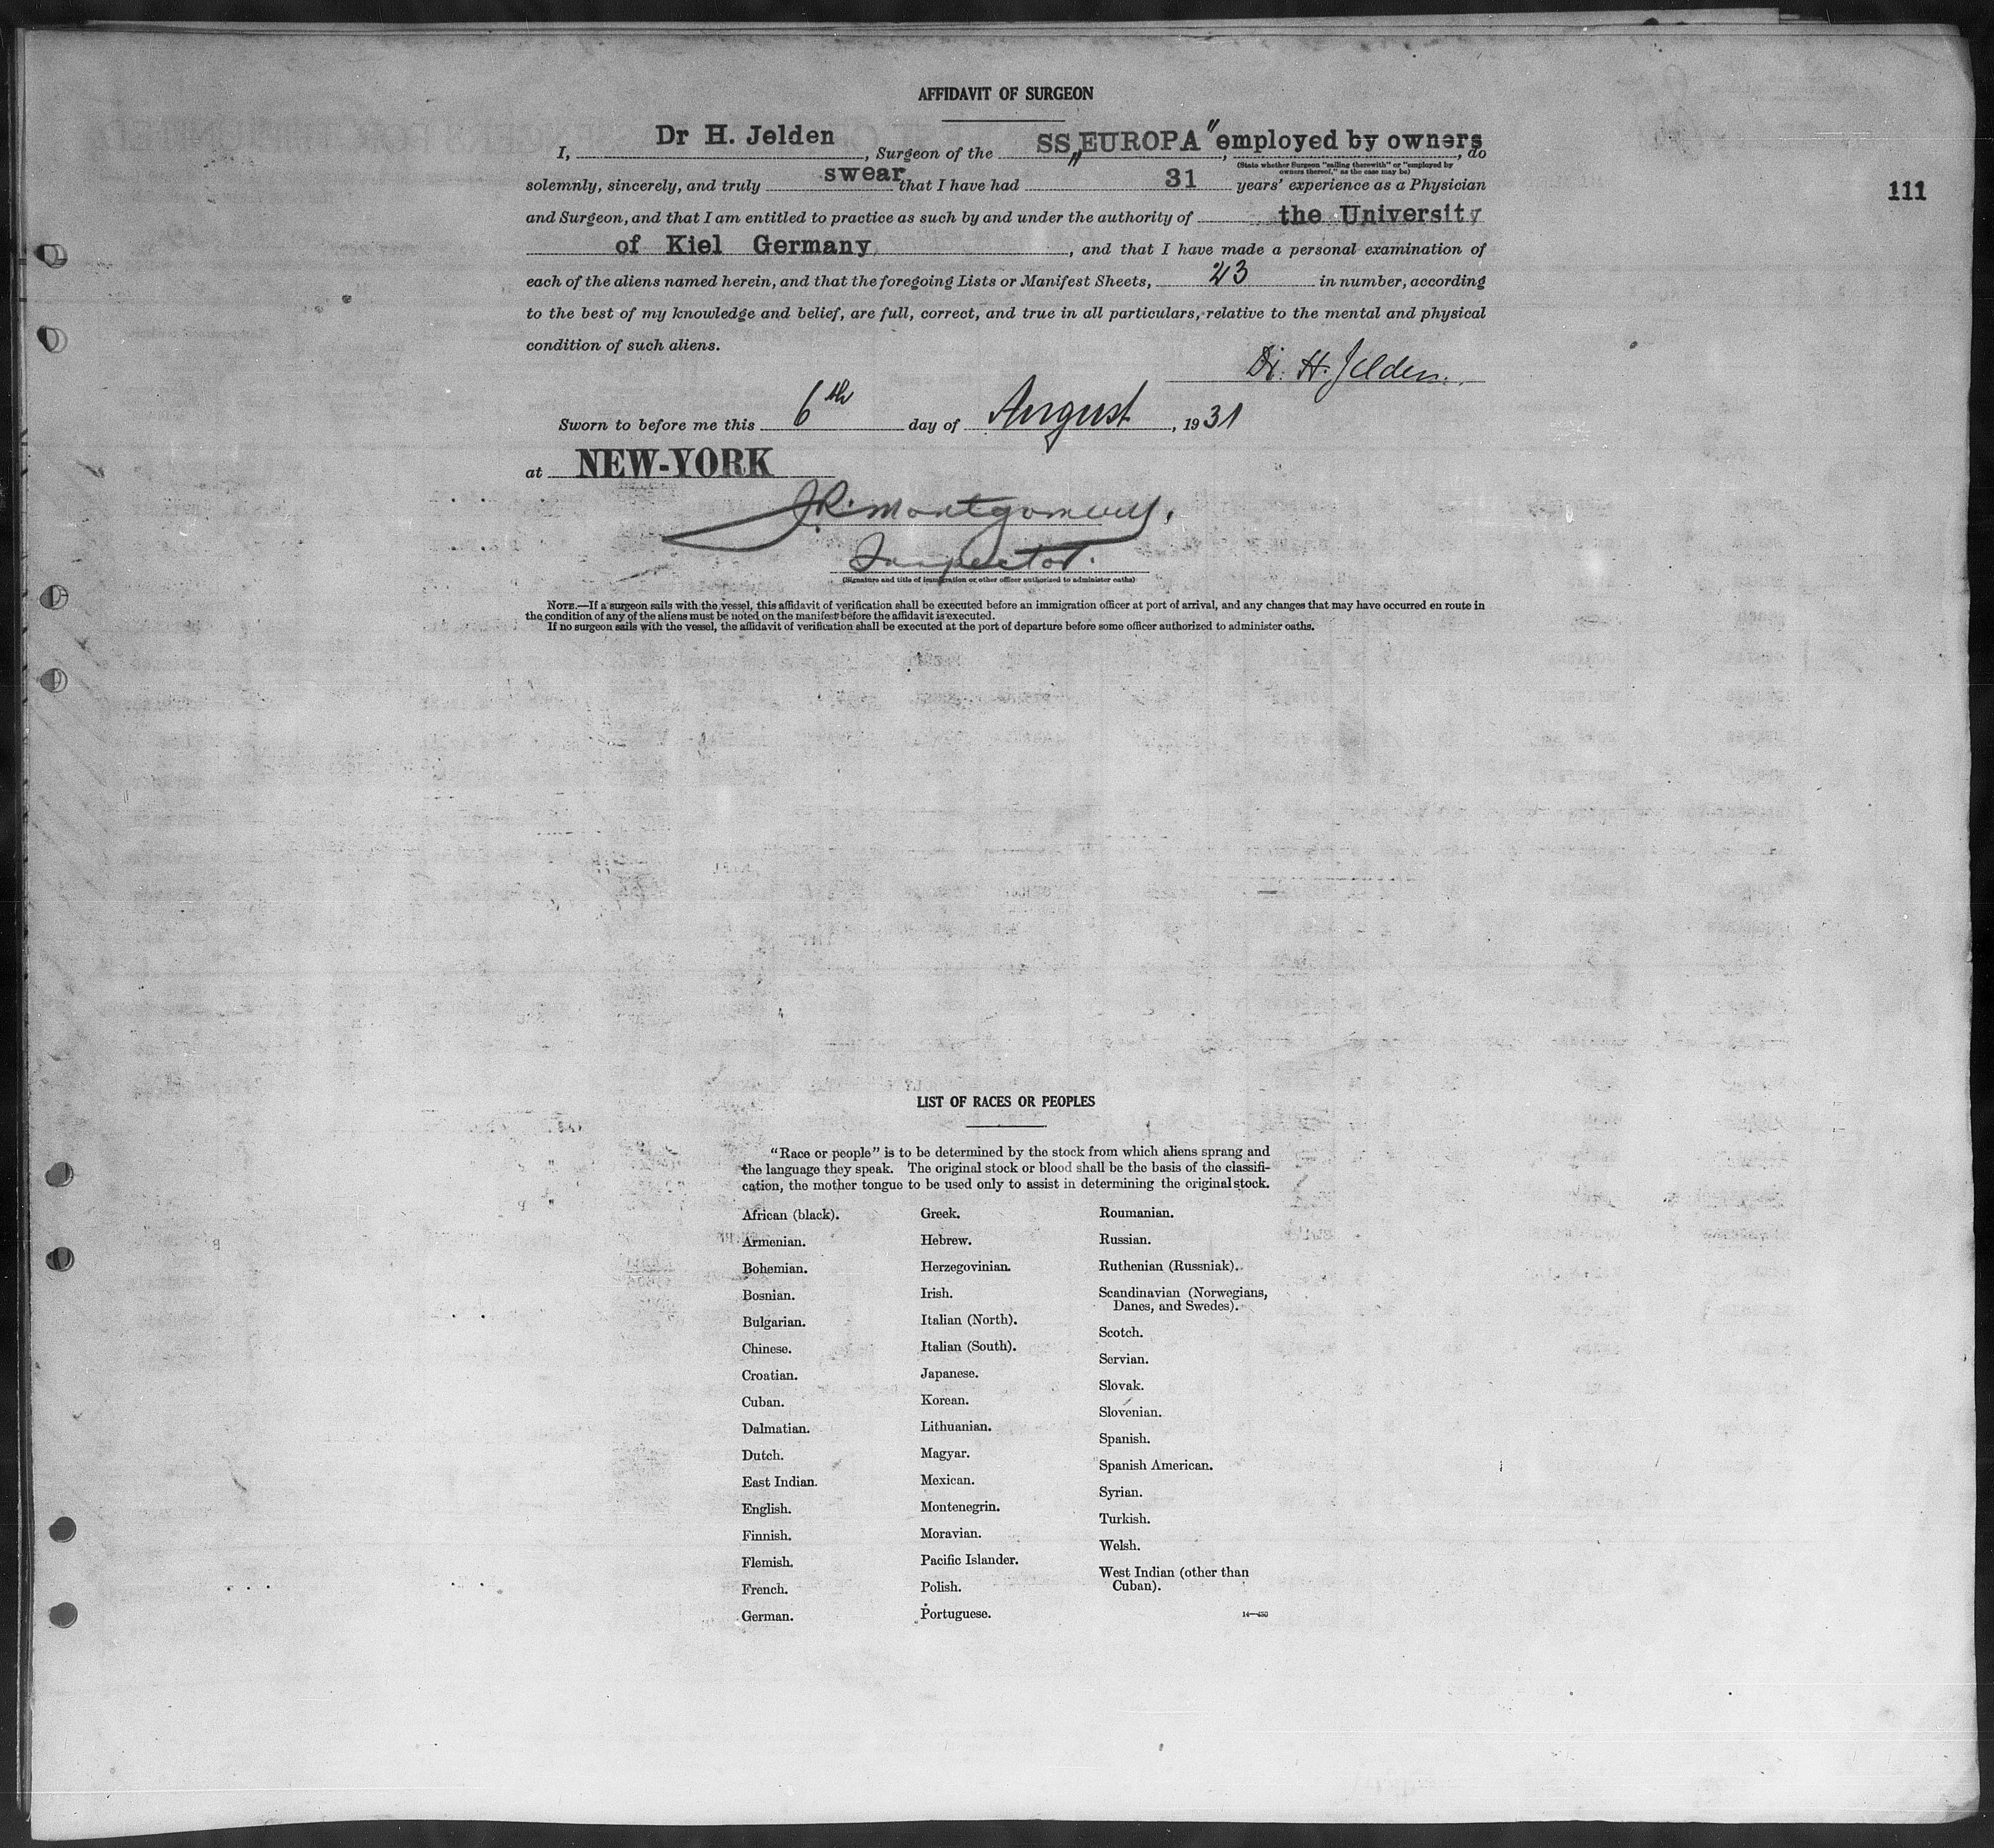 AFFIDAVIT OF SURGEON
I, Dr H. Jelden, Surgeon of the SS „EUROPA", employed by owners, do
(State whether Surgeon "sailing therewith" or "employed by
owners thereof," as the case may be)
solemnly, sincerely, and truly swear that I have had 31 years' experience as a Physician
111
and Surgeon, and that I am entitled to practice as such by and under the authority of the University
of Kiel Germany, and that I have made a personal examination of
each of the aliens named herein, and that the foregoing Lists or Manifest Sheets, 23 in number, according
to the best of my knowledge and belief, are full, correct, and true in all particulars, relative to the mental and physical
condition of such aliens.
Dr. H. Jelden.
Sworn to before me this 6th day of August, 1931
at NEW-YORK
J.R. Montgomery,
Inspector.
(Signature and title of immigration or other officer authorized to administer oaths)
NOTE.—If a surgeon sails with the vessel, this affidavit of verification shall be executed before an immigration officer at port of arrival, and any changes that may have occurred en route in
the condition of any of the aliens must be noted on the manifest before the affidavit is executed.
If no surgeon sails with the vessel, the affidavit of verification shall be executed at the port of departure before some officer authorized to administer oaths.
LIST OF RACES OR PEOPLES
"Race or people" is to be determined by the stock from which aliens sprang and
the language they speak. The original stock or blood shall be the basis of the classifi-
cation, the mother tongue to be used only to assist in determining the original stock.
African (black).
Armenian.
Bohemian.
Bosnian.
Bulgarian.
Chinese.
Croatian.
Cuban.
Dalmatian.
Dutch.
East Indian.
English.
Finnish.
Flemish.
French.
German.
Greek.
Hebrew.
Herzegovinian.
Irish.
Italian (North).
Italian (South).
Japanese.
Korean.
Lithuanian.
Magyar.
Mexican.
Montenegrin.
Moravian.
Pacific Islander.
Polish.
Portuguese.
Roumanian.
Russian.
Ruthenian (Russniak).
Scandinavian (Norwegians,
Danes, and Swedes).
Scotch.
Servian.
Slovak.
Slovenian.
Spanish.
Spanish American.
Syrian.
Turkish.
Welsh.
West Indian (other than
Cuban).
14—450